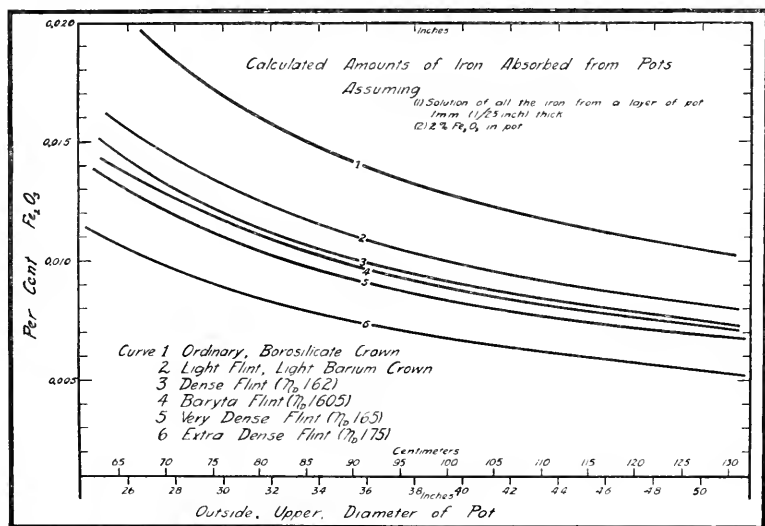 0.020
Inches
Calculated Amounts of Iron Absorbed from Pots
Assuming
(1) Solution of all the iron from a layer of pot
1mm (1/25 inch) thick
(2) 2% Fe₂O₃ in pot
0.015
0.010
0.005
Per Cent Fe₂O₃
1
2
3
4
5
6
Curve 1 Ordinary, Borosilicate Crown
2 Light Flint, Light Barium Crown
3 Dense Flint (n_D 1.62)
4 Baryta Flint (n_D 1.605)
5 Very Dense Flint (n_D 1.65)
6 Extra Dense Flint (n_D 1.75)
Centimeters
65 70 75 80 85 90 95 100 105 110 115 120 125 130
26 28 30 32 34 36 38 40 42 44 46 48 50
Inches
Outside, Upper, Diameter of Pot